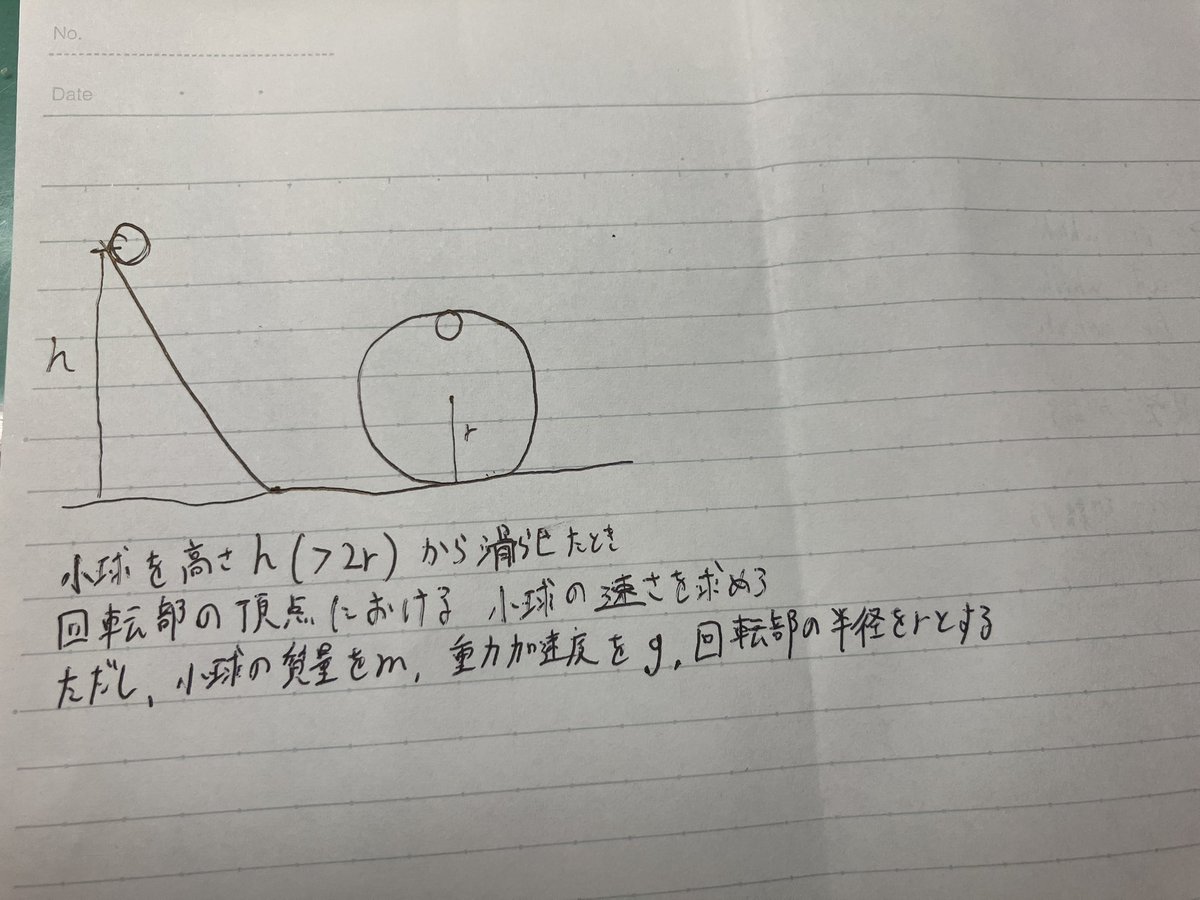 No.
Date
h
r
小球を高さh(>2r)から滑らせたとき
回転部の頂点における 小球の速さを求めろ
ただし、小球の質量をm, 重力加速度をg, 回転部の半径をrとする